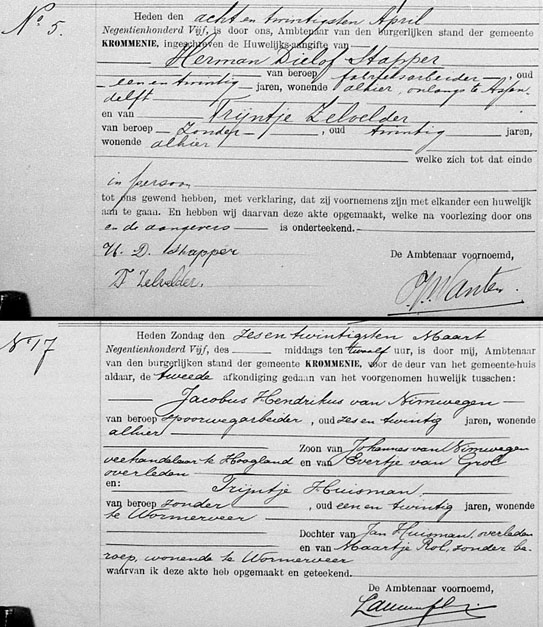 No 5.
Heden den acht en twintigsten April
Negentienhonderd Vijf, is door ons, Ambtenaar van den burgerlijken stand der gemeente
KROMMENIE, ingeschreven de Huwelijks-aangifte van
Herman Dielof Stapper
van beroep fabrieksarbeider, oud
een en twintig jaren, wonende alhier, onlangs te Assen-
delft
en van Trijntje Zelvelder
van beroep Zonder, oud twintig jaren,
wonende alhier
welke zich tot dat einde
in persoon
tot ons gewend hebben, met verklaring, dat zij voornemens zijn met elkander een huwelijk
aan te gaan. En hebben wij daarvan deze akte opgemaakt, welke na voorlezing door ons
en de aangevers is onderteekend.
H. D. Stapper
De Ambtenaar voornoemd,
T. Zelvelder.
No 17
Heden Zondag den zes en twintigsten Maart
Negentienhonderd Vijf, des middags ten twaalf uur, is door mij, Ambtenaar
van den burgerlijken stand der gemeente KROMMENIE, voor de deur van het gemeente-huis
aldaar, de tweede afkondiging gedaan van het voorgenomen huwelijk tusschen:
Jacobus Hendrikus van Nimwegen
van beroep spoorwegarbeider, oud zes en twintig jaren, wonende
alhier
Zoon van Johannes van Nimwegen
veehandelaar te Hoogland en van Evertje van Grol
overleden
en: Trijntje Huisman
van beroep zonder, oud een en twintig jaren, wonende
te Wormerveer
Dochter van Jan Huisman, overleden
en van Maartje Rol, zonder be-
roep, wonende te Wormerveer
waarvan ik deze akte heb opgemaakt en geteekend.
De Ambtenaar voornoemd,